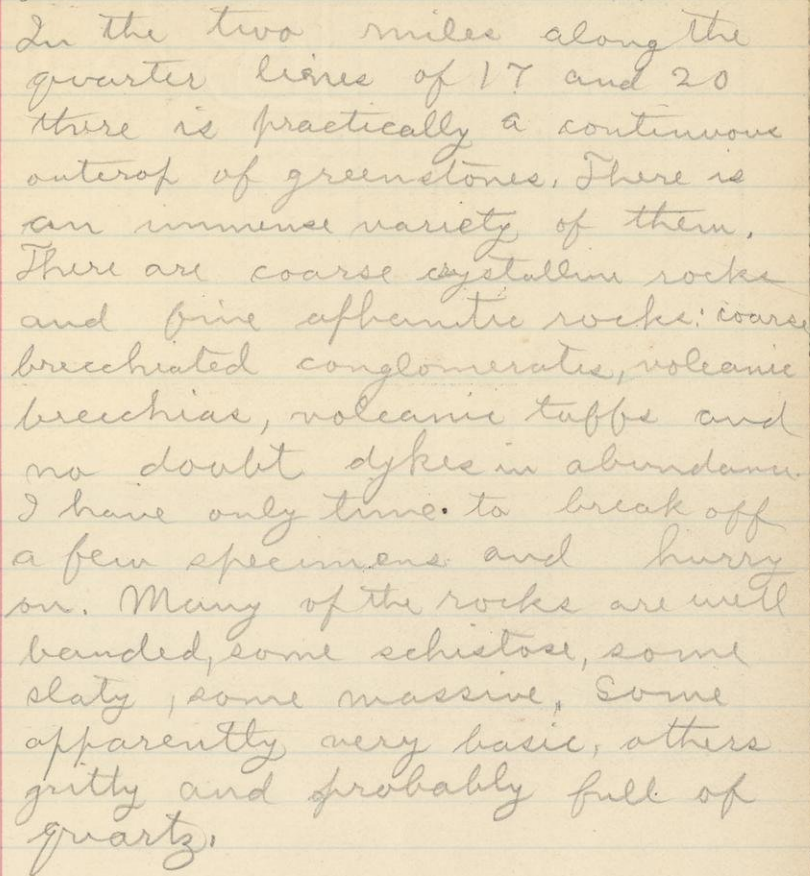 In the two miles along the
quarter lines of 17 and 20
there is practically a continuous
outcrop of greenstones. There is
an immense variety of them.
There are coarse crystalline rocks
and fine aphanitic rocks: coarse
brecchiated conglomerates, volcanic
brecchias, volcanic tuffs and
no doubt dykes in abundance.
I have only time to break off
a few specimens and hurry
on. Many of the rocks are well
banded, some schistose, some
slaty, some massive. Some
apparently very basic, others
gritty and probably full of
quartz.